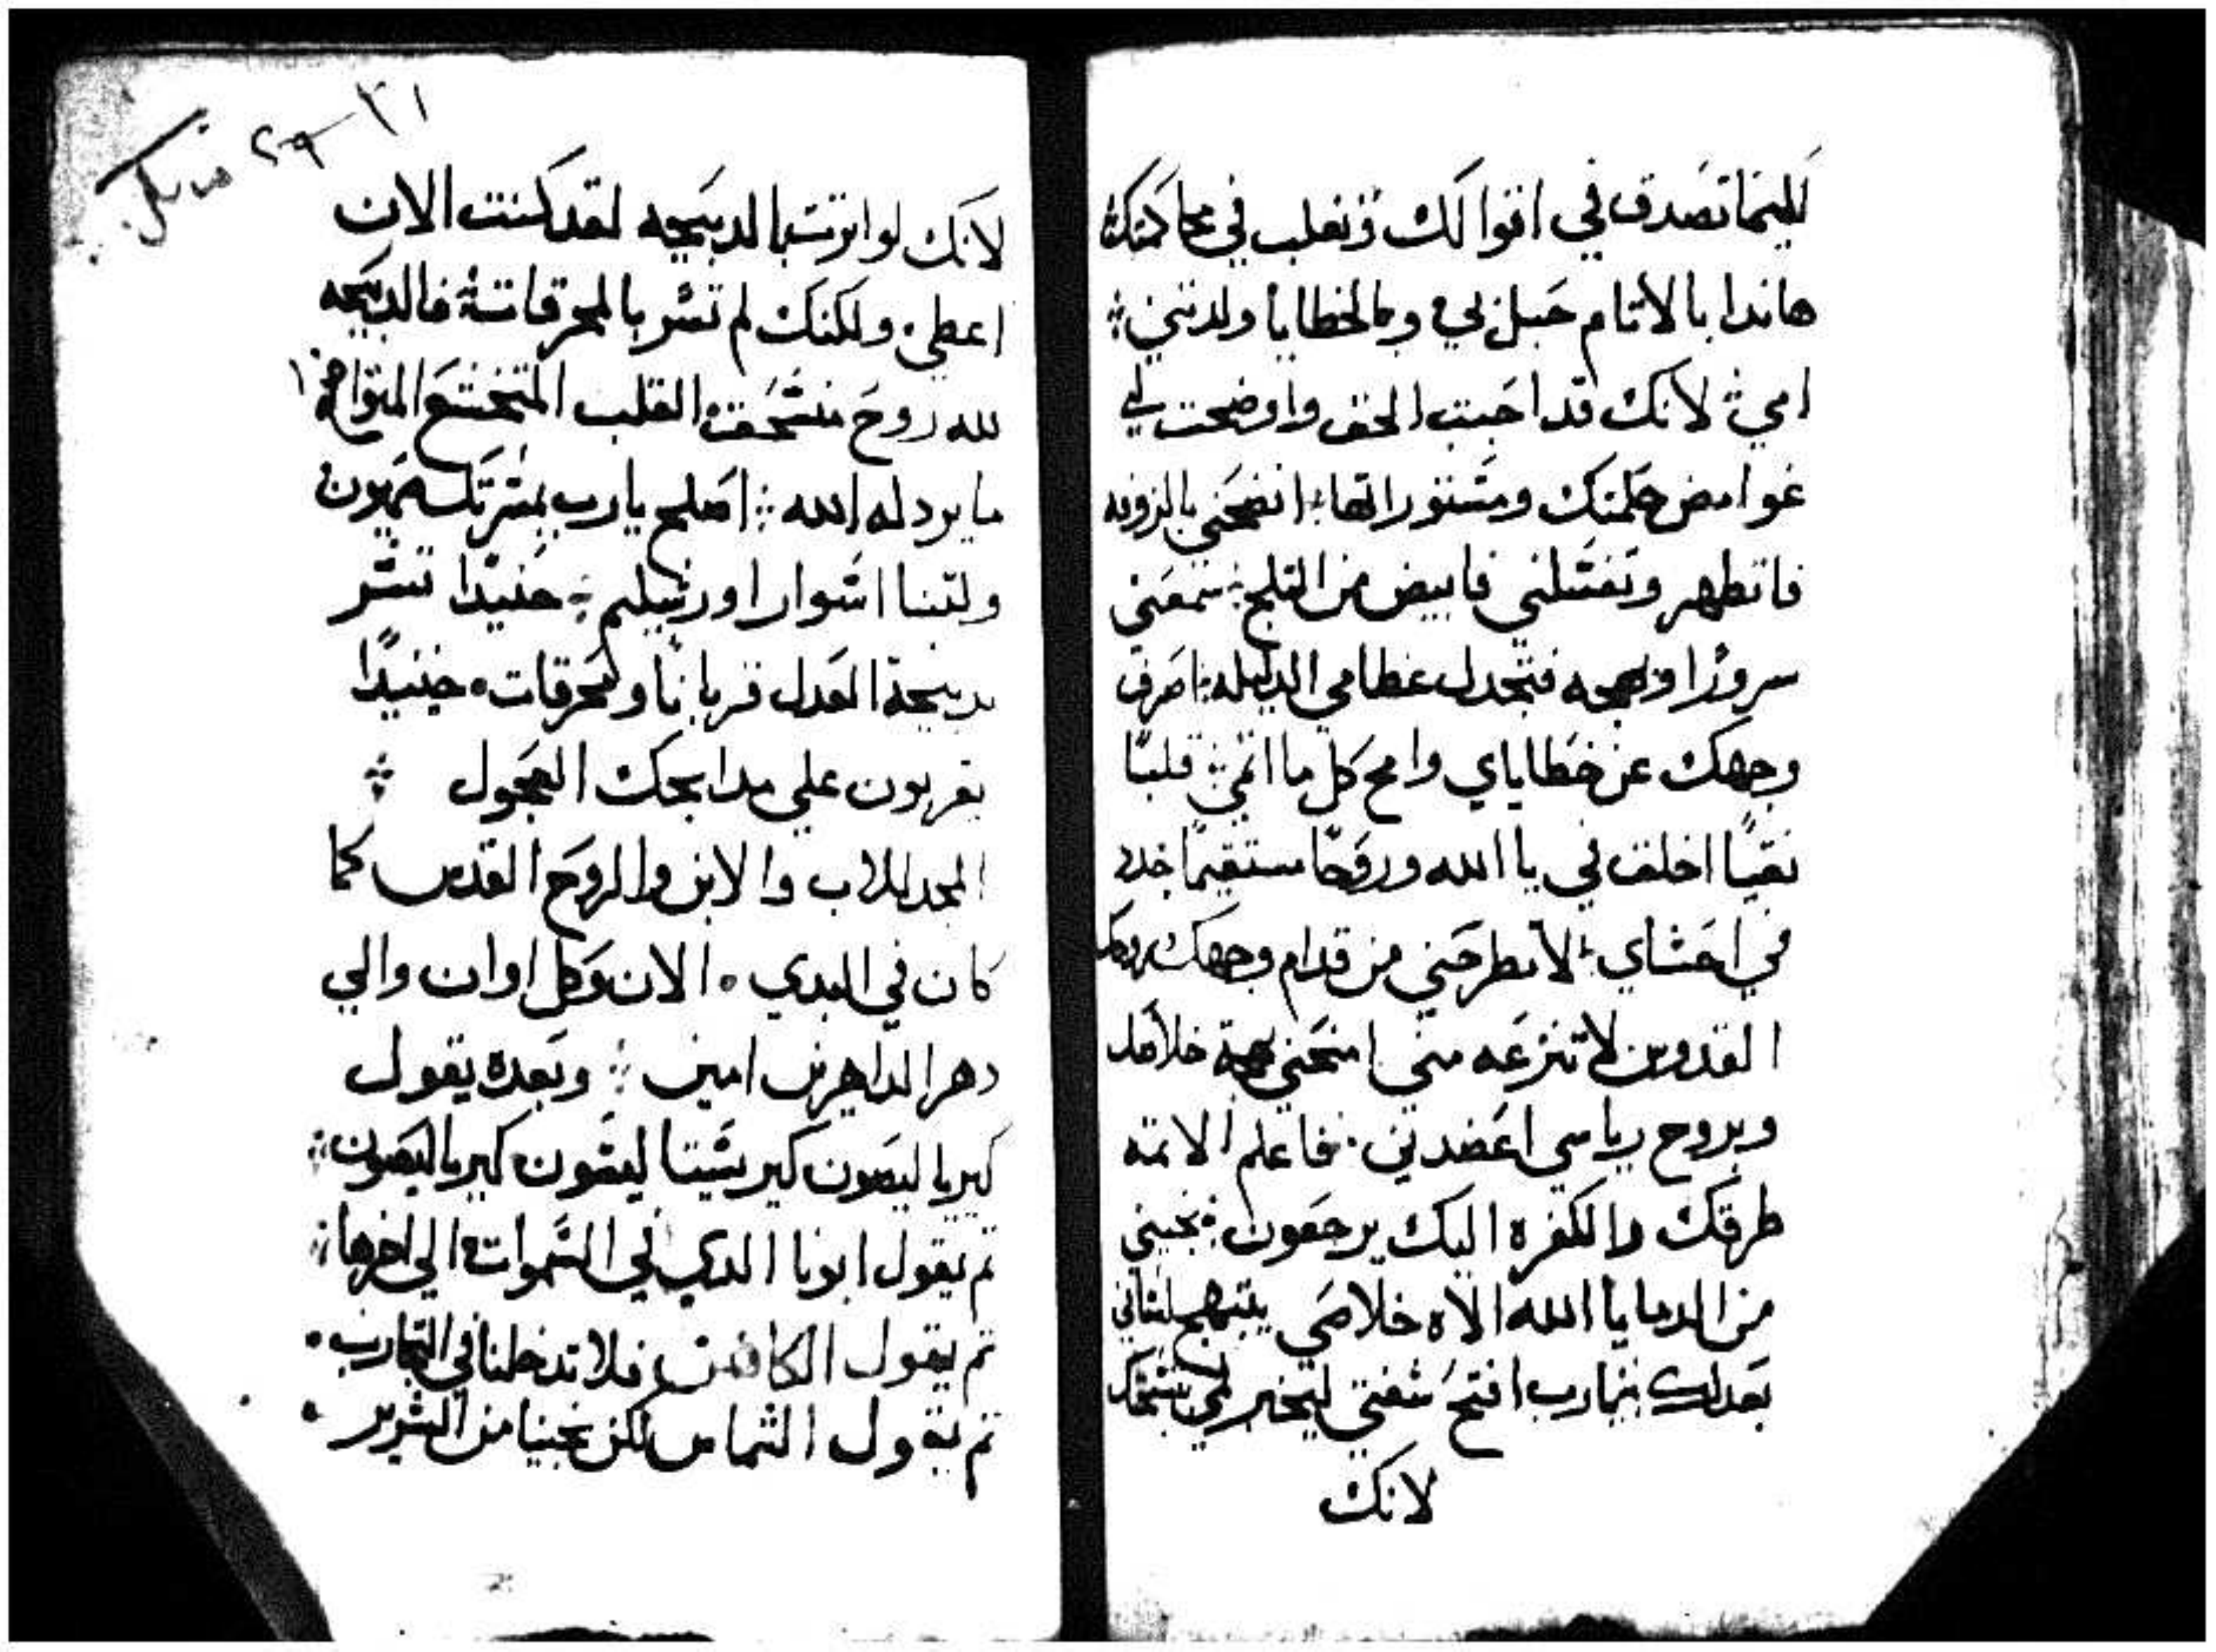 لكيما تصدق في اقوالك وتغلب في محاكمتك
هاندا بالاتام حبل بي وبالخطايا ولدتني
امي لانك قد احببت الحق واوضحت لي
غوامض حكمتك ومستوراتها انضحني بالزوفه
فاتطهر وتغسلني فابيض من التلج تسمعني
سرورًا وبهجه فتجدل عظامي الدليله اصرف
وجهك عن خطاياي وامح كل ما اتمي قلبًا
نقيًا اخلق في يا الله وروحًا مستقيمًا جدد
في احشاي لا تطرحني من قدام وجهك وروحك
القدوس لا تنزعه مني امنحني بهجة خلاصك
وبروح رياسي اعضدني فاعلم الاتمه
طرقك والكفره اليك يرجعون نجيني
من الدما يا الله الاه خلاصي يبتهج لساني
بعدلك يارب افتح شفتي ليخبر فمي بتسبحتك
لانك
٣١
٢٩
لانك لو اترت الدبيحه لقد كنت الان
اعطي ولكنك لم تسر بالمحرقات فالدبيحه
لله روح منسحق القلب المتخشع المتواضع
ما يردله الله اصلح يارب بمسرتك صهيون
ولتبنا اسوار اورشليم حنيدًا تسر
بدبيحة العدل قربانًا ومحرقات حينيدًا
يقربون علي مدابحك العجول
المجد للاب والابن والروح القدس كما
كان في البدي الان وكل اوان والي
دهر الداهرين امين وبعده يقول
كيريا ليصون كيريستا ليسون كيريا ليصون
تم يقول ابونا الدي في السموات الي اخرها
تم يقول الكاهن فلا تدخلنا في التجارب
تم يقول الشماس لكن نجينا من الشرير